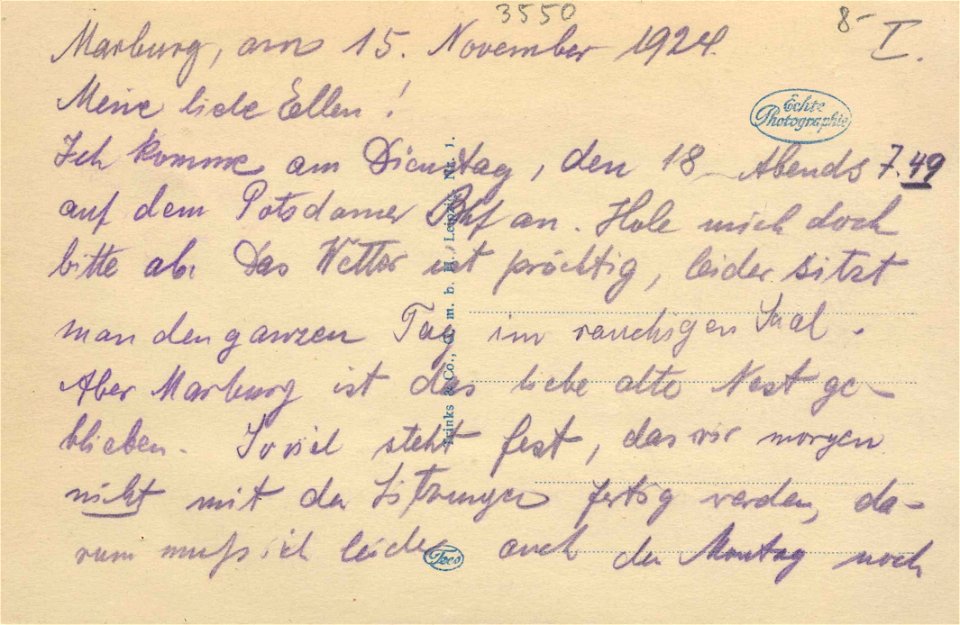 3550
8- I.
Marburg, am 15. November 1924.
Meine liebe Ellen!
Echte
Photographie
Ich komme am Dienstag, den 18. Abends 7.49
auf dem Potsdamer Bhf an. Hole mich doch
bitte ab. Das Wetter ist prächtig, leider sitzt
man den ganzen Tag im rauchigen Saal.
Aber Marburg ist das liebe alte Nest ge-
blieben. Soviel steht fest, das wir morgen
nicht mit den Sitzungen fertig werden, da-
rum muß ich leider auch den Montag noch
Trinks & Co., G. m. b. H., Leipzig Nr. 1.
Teco